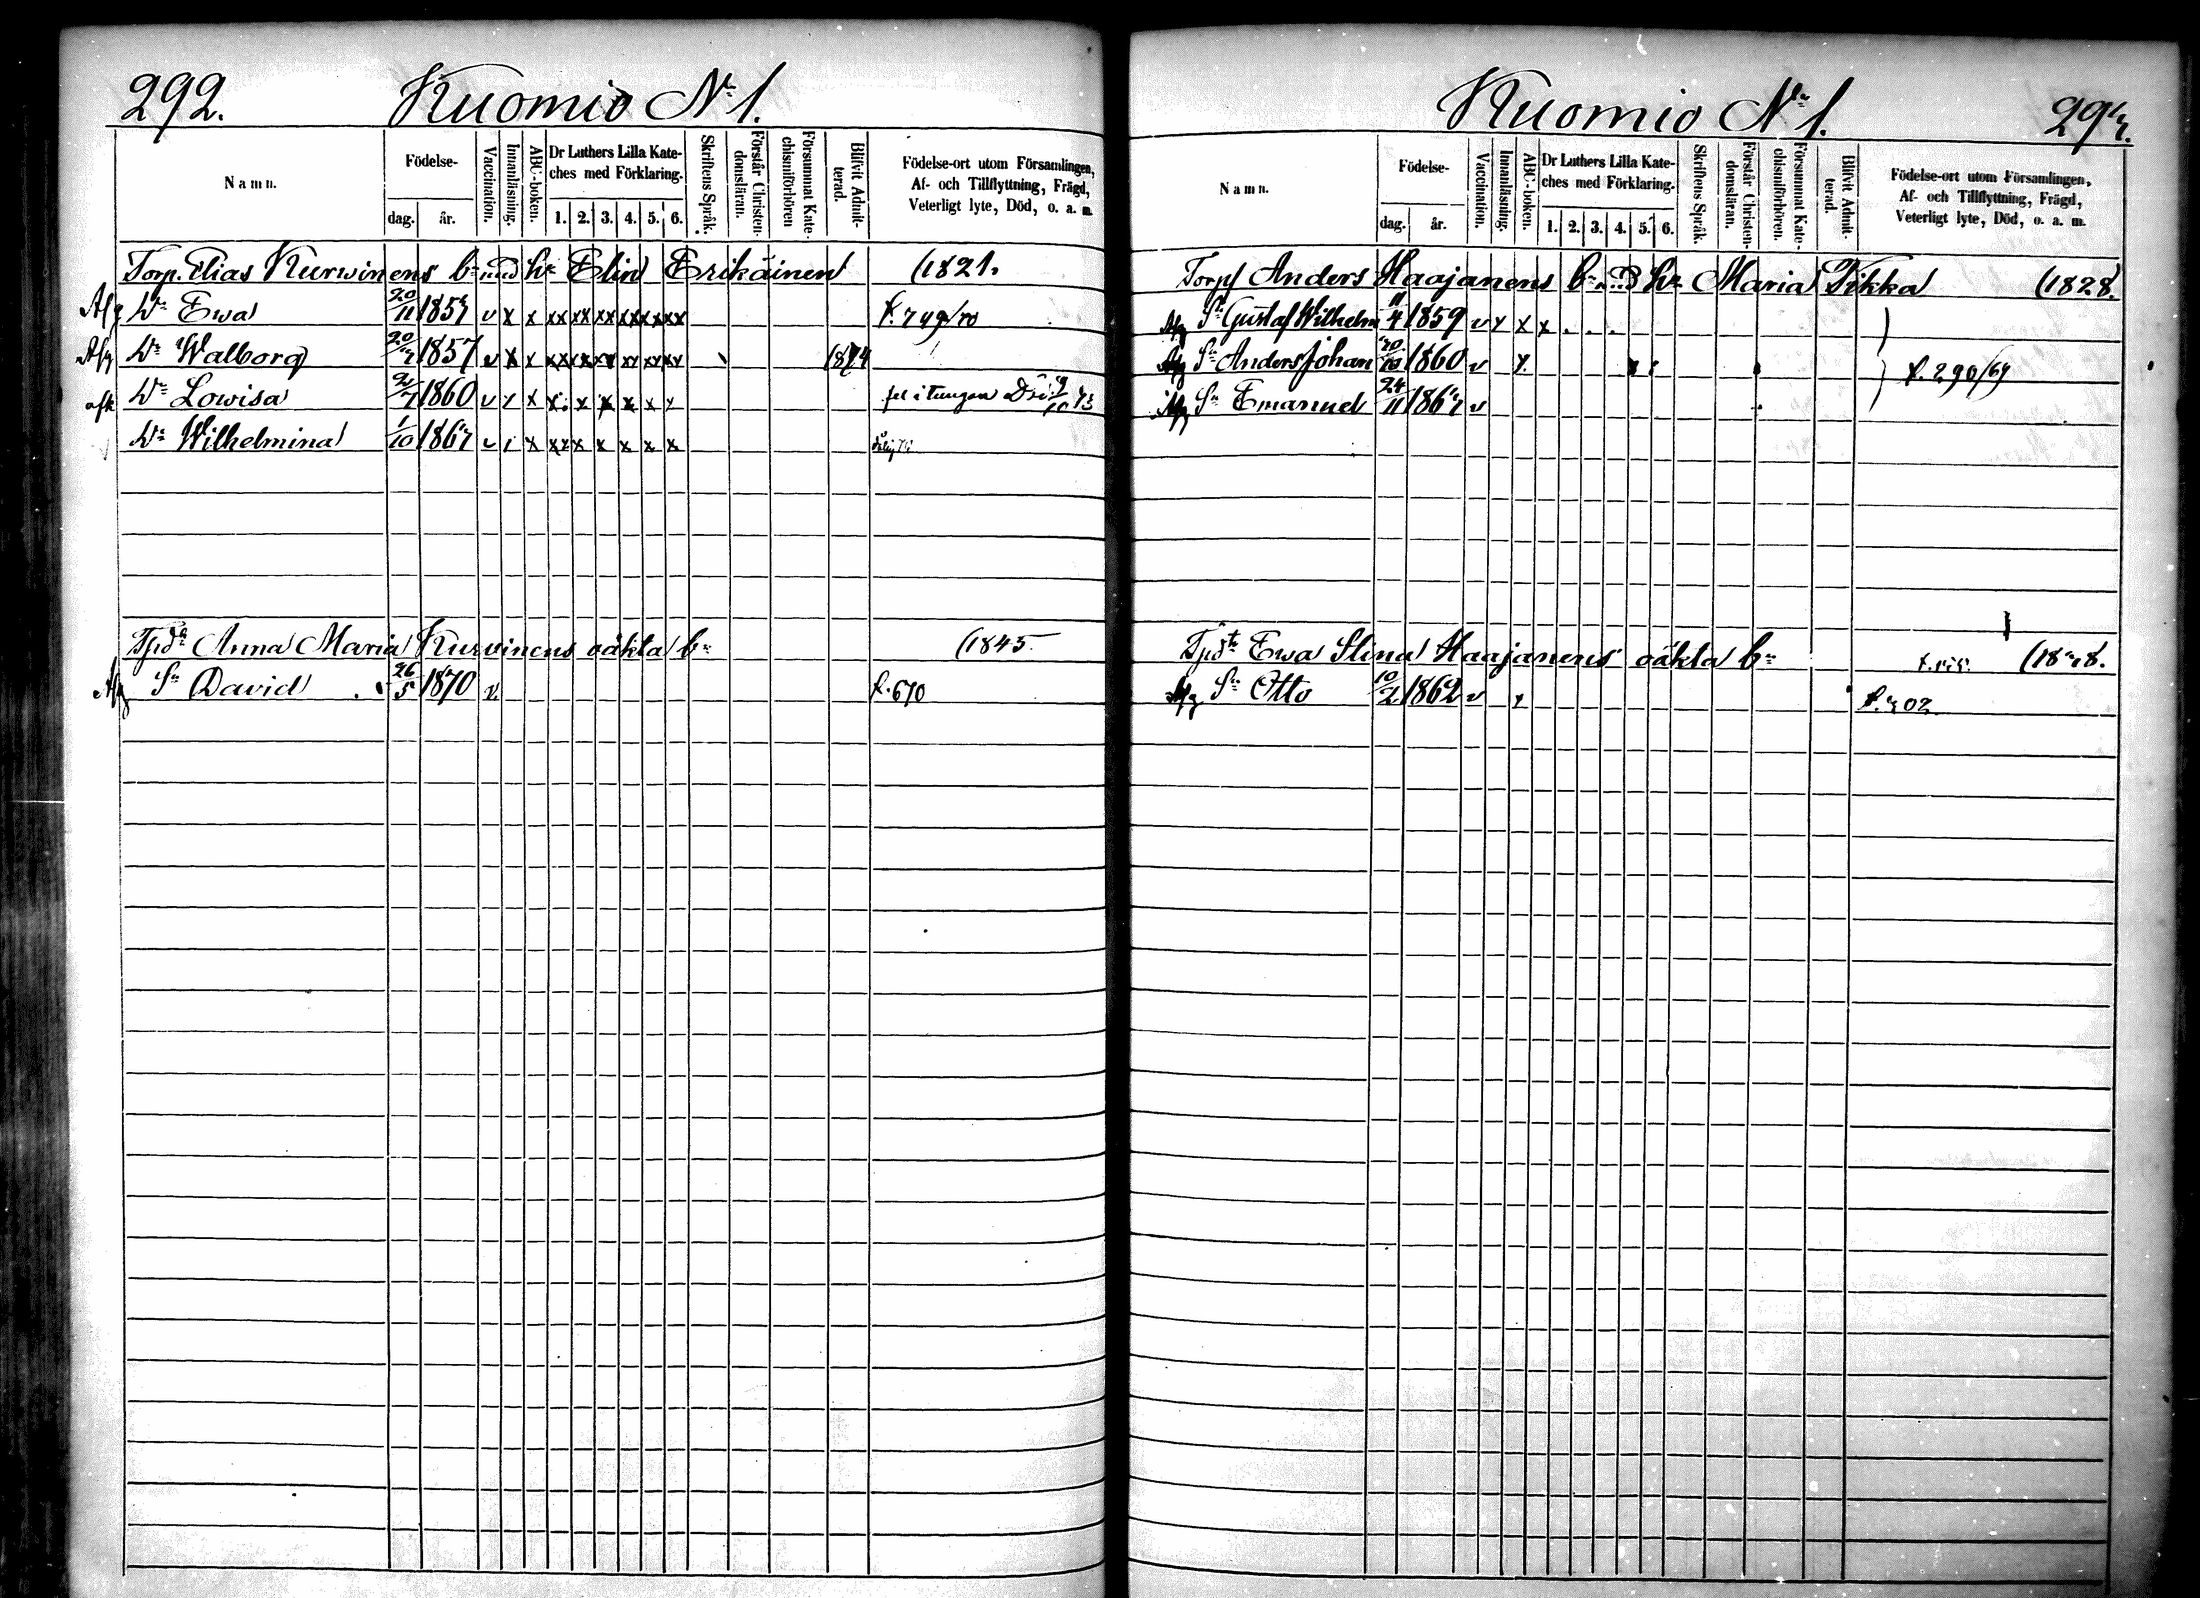 292. Kuomio N:o 1.
Namn. Födelse- dag. år. Vaccination. Innanläsning. ABC-boken. Dr Luthers Lilla Kateches med Förklaring. 1. 2. 3. 4. 5. 6. Skriftens Språk. Förstår Christendomsläran. Försummat Katechismiförhören Blifvit Admitterad. Födelse-ort utom Församlingen, Af- och Tillflyttning, Frägd, Veterligt lyte, Död, o. a. m.
Torp. Elias Kurwinens b:n med h:u Elin Erikäinen (1821.
Afg D:r Ewa 20/11 185 v x x xx xx xx xx xx xx
Afg D:r Walborg 1857 v x x xx xx xx xx xx xx 1874
afl D:r Lowisa 1860 v x x x x x x x x fel i tungan
D:r Wilhelmina 1/10 186 v x xx x x x x x
Anna Maria Kurvinens oäkta b:n (1845
Afg S:n David 26/5 1870 v. f. 670
Kuomio N:o 1. 29
Namn. Födelse- dag. år. Vaccination. Innanläsning. ABC-boken. Dr Luthers Lilla Kateches med Förklaring. 1. 2. 3. 4. 5. 6. Skriftens Språk. Förstår Christendomsläran. Försummat Katechismiförhören. Blifvit Admitterad. Födelse-ort utom Församlingen, Af- och Tillflyttning, Frägd, Veterligt lyte, Död, o. a. m.
Torp Anders Haajanens b:n med h:u Maria Tikka (1828.
Afg S:n Gustaf Wilhelm 11/4 1859 v x x x
Afg S:n Anders Johan 1860 v x f. 290/69
Afg S:n Emanuel 24/11 186 v
Ewa Stina Haajanens oäkta b:n
Afg S:n Otto 10/2 1862 v x